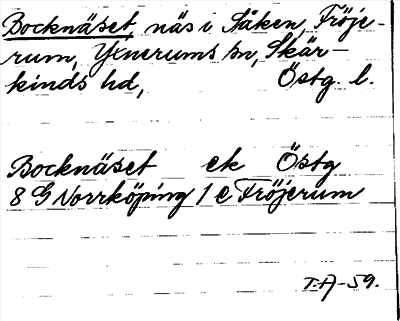 Bocknäset, näs i Åken, Fröje-
rum, Yxnerums sn, Skär-
kinds hd, Östg. l.
Bocknäset ek Östg
8 G Norrköping 1 c Fröjerum
T.A-59.